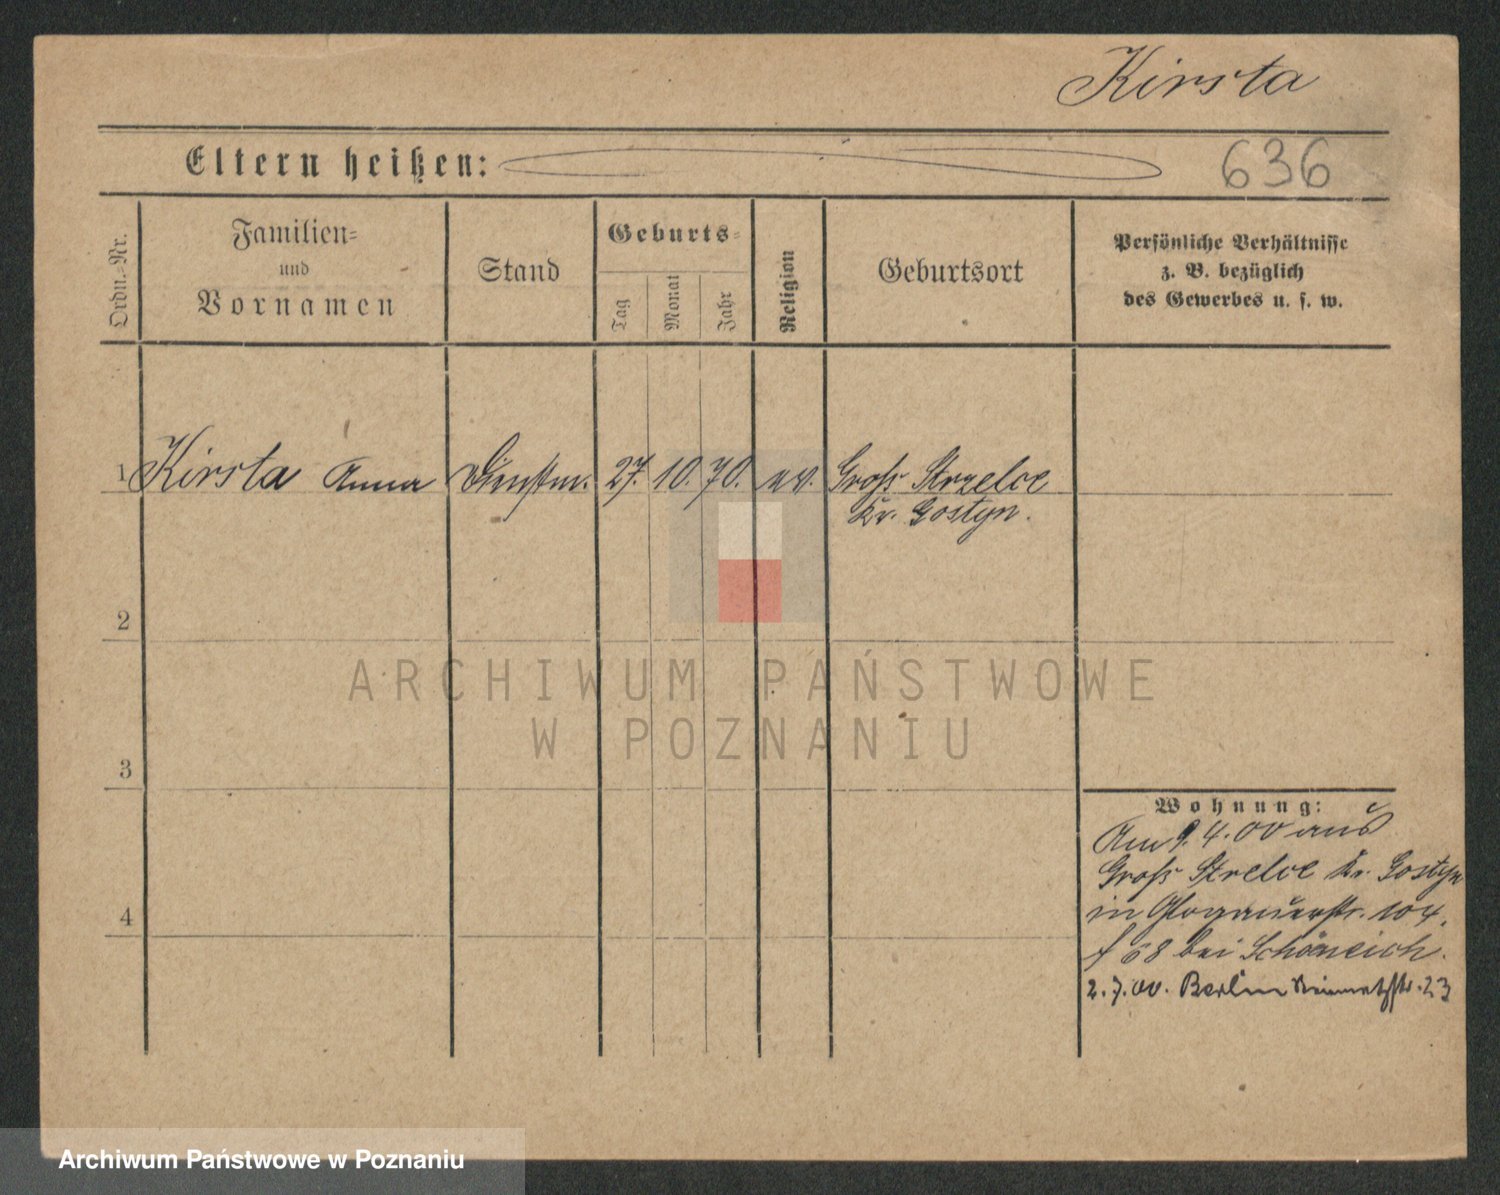 Kirsta
Eltern heißen:
636
Ordn.=Nr.
Familien=
und
Vornamen
Stand
Geburts=
Tag
Monat
Jahr
Religion
Geburtsort
Persönliche Verhältnisse
z. B. bezüglich
des Gewerbes u. s. w.
1 Kirsta Anna Dienstm. 27. 10. 70. ev. Groß Strzelce
Kr. Gostyn.
2
3
4
ARCHIWUM PAŃSTWOWE
W POZNANIU
Wohnung:
Am 9. 4. 00 aus
Groß Strelce Kr. Gostyn
in Glogauerstr. 104.
f 68 bei Schöneich.
2. 7. 00. Berlin 23
Archiwum Państwowe w Poznaniu